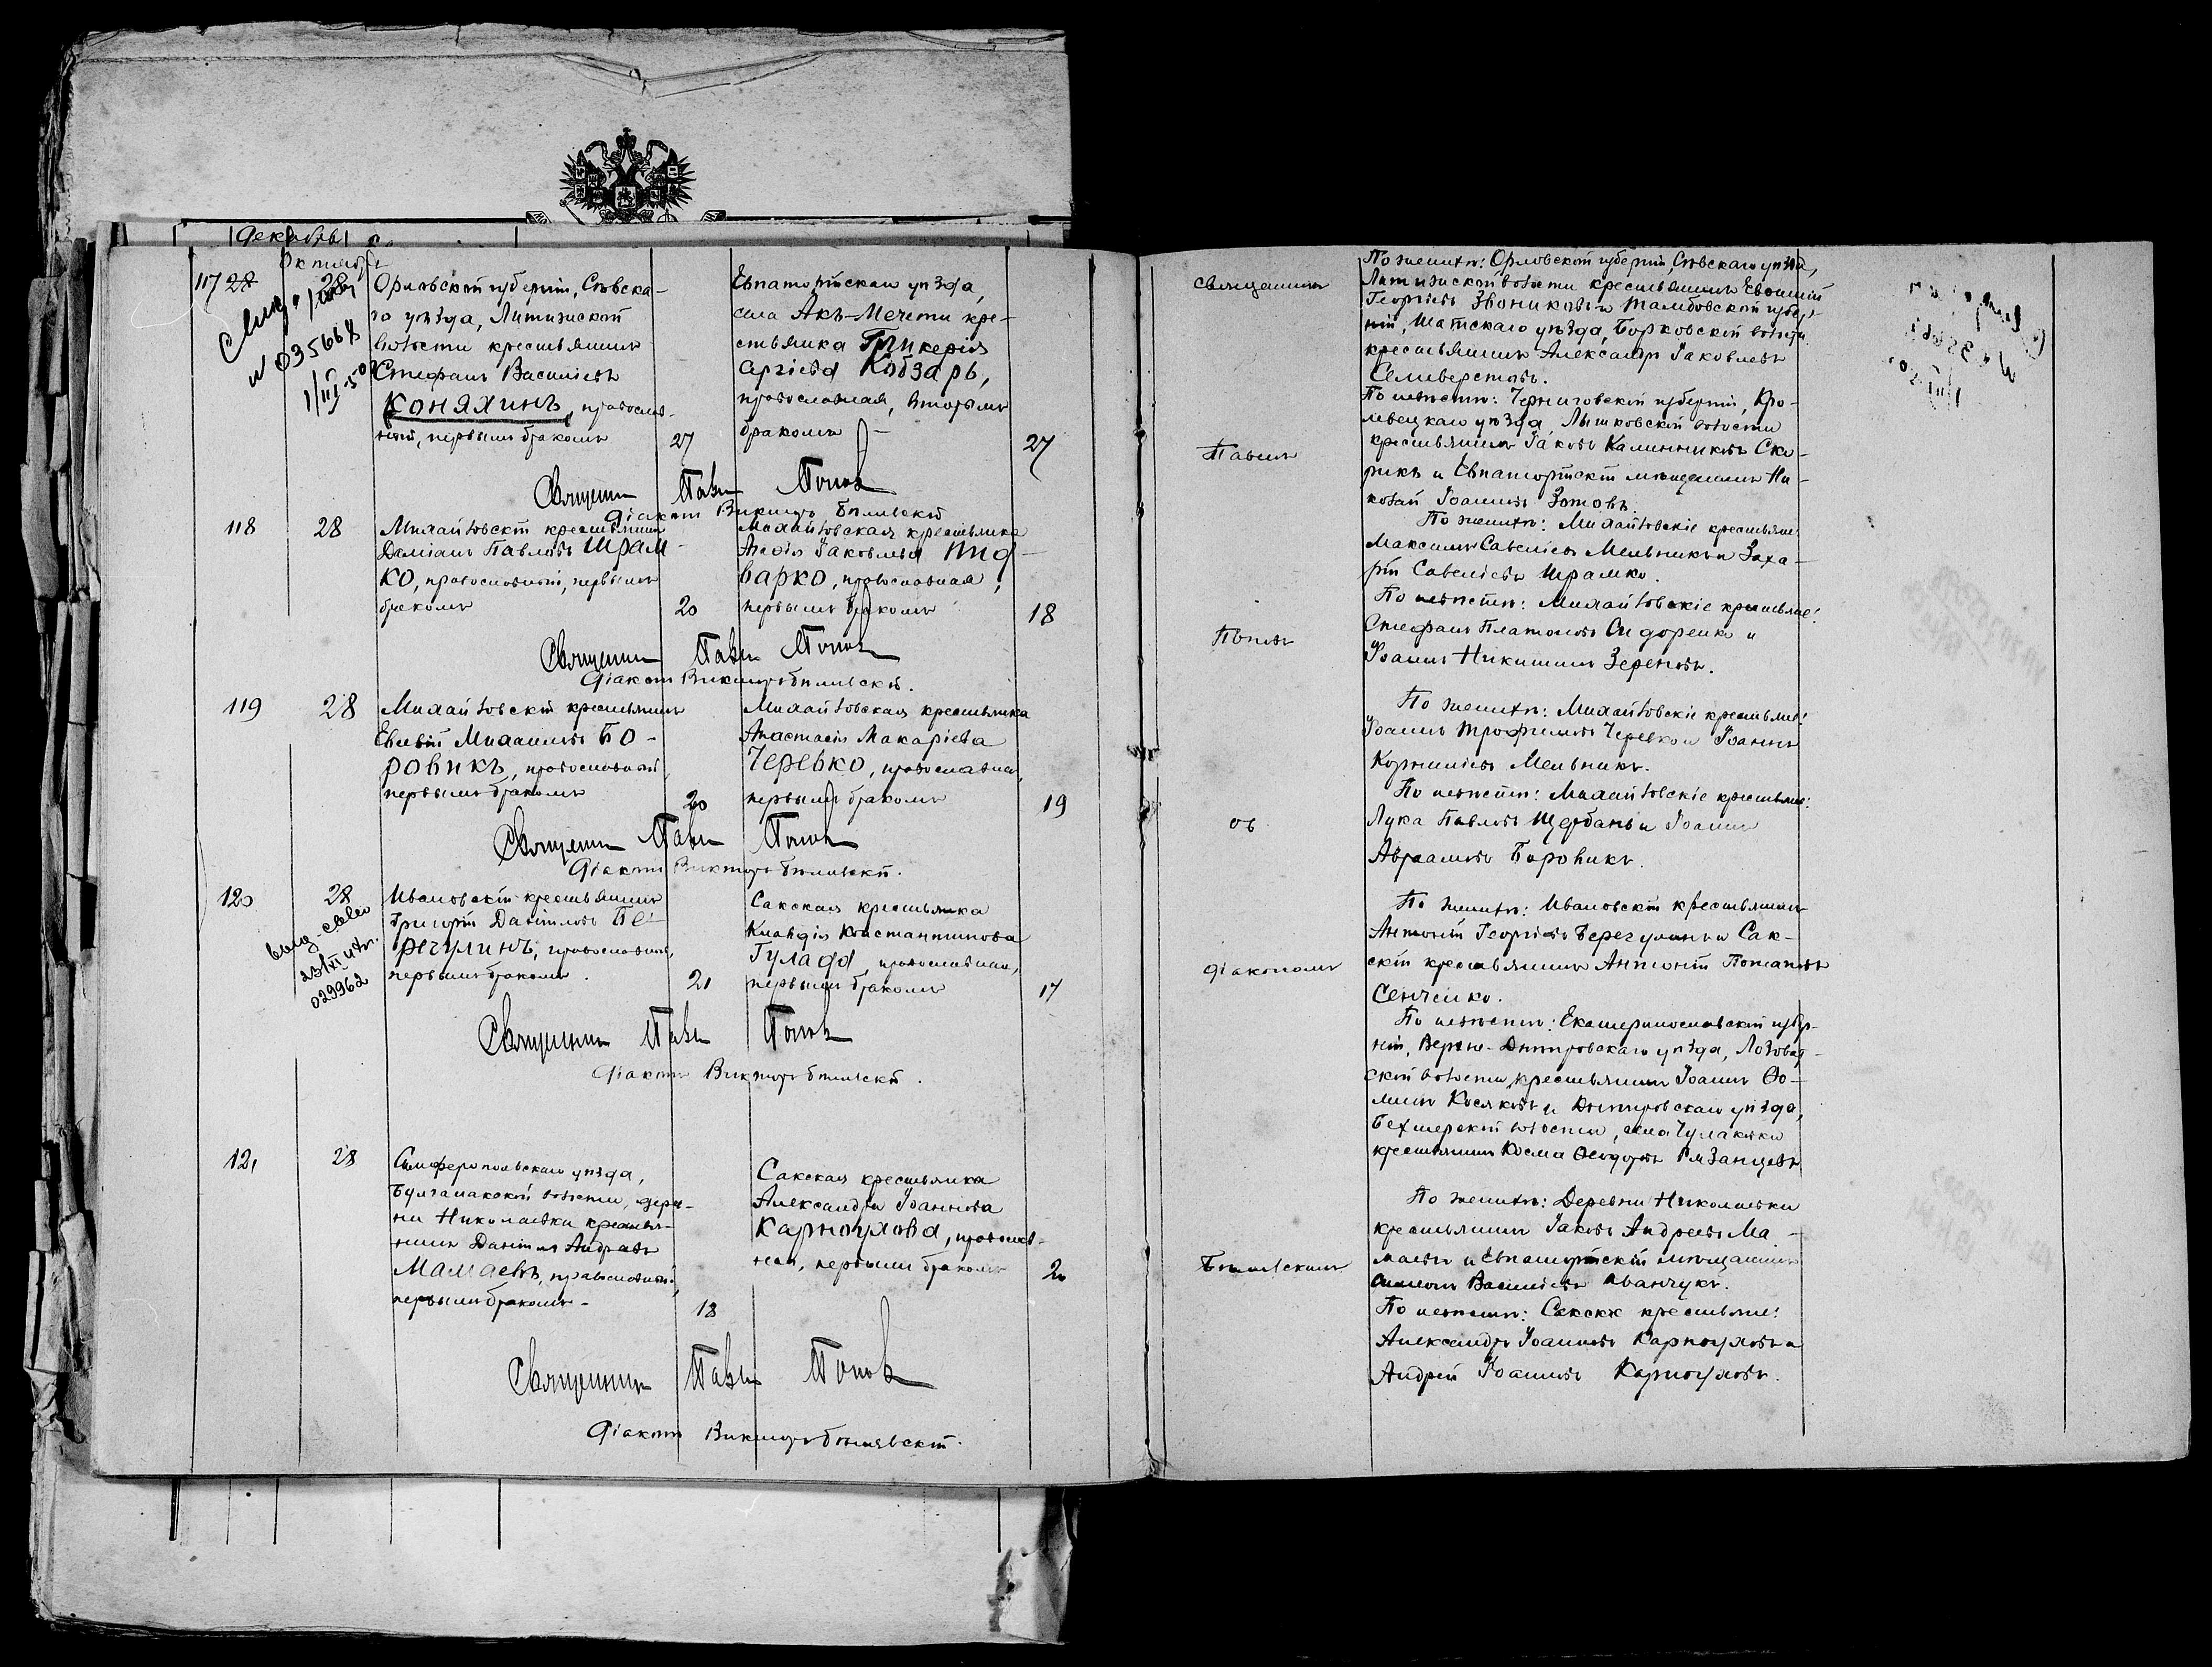 Декабрь
Октябрь
117 28 28
Орловской губернии, Сѣвска-
го уѣзда, Литижской
волости крестьянинъ
Стефанъ Василіевъ
Коняхинъ, православ-
ный, первымъ бракомъ
27
Евпаторійскаго уѣзда,
села Акъ-Мечети кре-
стьянка Гликерія
Сергіева Кобзарь,
православная, вторымъ
бракомъ
27
№ 035668
Священникъ Павелъ Поповъ
Діаконъ Викторъ Бѣлявскій
118
28
Михайловскій крестьянинъ
Даміанъ Павловъ Шрам-
ко, православный, первымъ
бракомъ
20
Михайловская крестьянка
Яковлева Пид-
варко, православная,
первымъ бракомъ
18
Священникъ Павелъ Поповъ
Діаконъ Викторъ Бѣлявскій.
119
28
Михайловскій крестьянинъ
Евсевій Михаиловъ Бо-
ровикъ, православный,
первымъ бракомъ
20
Михайловская крестьянка
Анастасія Макаріева
Черевко, православная,
первымъ бракомъ
19
Священникъ Павелъ Поповъ
Діаконъ Викторъ Бѣлявскій.
120
28
Ивановскій крестьянинъ
Григорій Даніиловъ Бе-
регулинъ, православный,
первымъ бракомъ.
21
Сакская крестьянка
Клавдія Константинова
Гулада, православная,
первымъ бракомъ
17
029962
Священникъ Павелъ Поповъ
Діаконъ Викторъ Бѣлявскій.
121
28
Симферопольскаго уѣзда,
Булганакской волости, дерев-
ни Николаевки крестья-
нинъ Даніилъ Андреевъ
Мамаевъ, православный,
первымъ бракомъ
18
Сакская крестьянка
Александра Іоаннова
Карноухова, православ-
ная, первымъ бракомъ
20
Священникъ Павелъ Поповъ
Діаконъ Викторъ Бѣлявскій.
Священникъ
Павелъ
Поповъ
съ
діакономъ
Бѣлявскимъ
По женихѣ: Орловской губерніи, Сѣвскаго уѣзда,
Литижской волости крестьянинъ Евфимій
Георгіевъ Звониковъ и Тамбовской губер-
ніи, Шатскаго уѣзда, Борковской волости
крестьянинъ Александръ Іаковлевъ
Селиверстовъ.
По невѣстѣ: Черниговской губерніи, Кро-
левецкаго уѣзда, волости
крестьянинъ Іаковъ Калинниковъ Ско-
рикъ и Евпаторійскій мѣщанинъ Ни-
колай Іоанновъ Зотовъ.
По женихѣ: Михайловскіе крестьяне:
Максимъ Савеліевъ Мельникъ и Заха-
рій Савеліевъ Шрамко.
По невѣстѣ: Михайловскіе крестьяне:
Стефанъ Платоновъ Сидоренко и
Іоаннъ Никитинъ Зереновъ.
По женихѣ: Михайловскіе крестьяне:
Іоаннъ Трофимовъ Черевко и Іоаннъ
Корниліевъ Мельникъ.
По невѣстѣ: Михайловскіе крестьяне:
Лука Павловъ Щербань и Іоаннъ
Авраамовъ Боровикъ.
По женихѣ: Ивановскій крестьянинъ
Антоній Георгіевъ Берегулинъ и Сак-
скій крестьянинъ Антоній Потаповъ
Сенченко.
По невѣстѣ: Екатеринославской губер-
ніи, Верхне-Днѣпровскаго уѣзда, Лозоват-
ской волости, крестьянинъ Іоаннъ Ѳо-
минъ Косяковъ и Днѣпровскаго уѣзда,
Бехтерской волости, села Чулаковки
крестьянинъ Косма Ѳеодоровъ Рязанцевъ
По женихѣ: Деревни Николаевки
крестьянинъ Іаковъ Андреевъ Ма-
маевъ и Евпаторійскій мѣщанинъ
Симеонъ Василіевъ Иванчукъ.
По невѣстѣ: Сакскіе крестьяне:
Александръ Іоанновъ Карноуховъ и
Андрей Іоанновъ Карноуховъ.